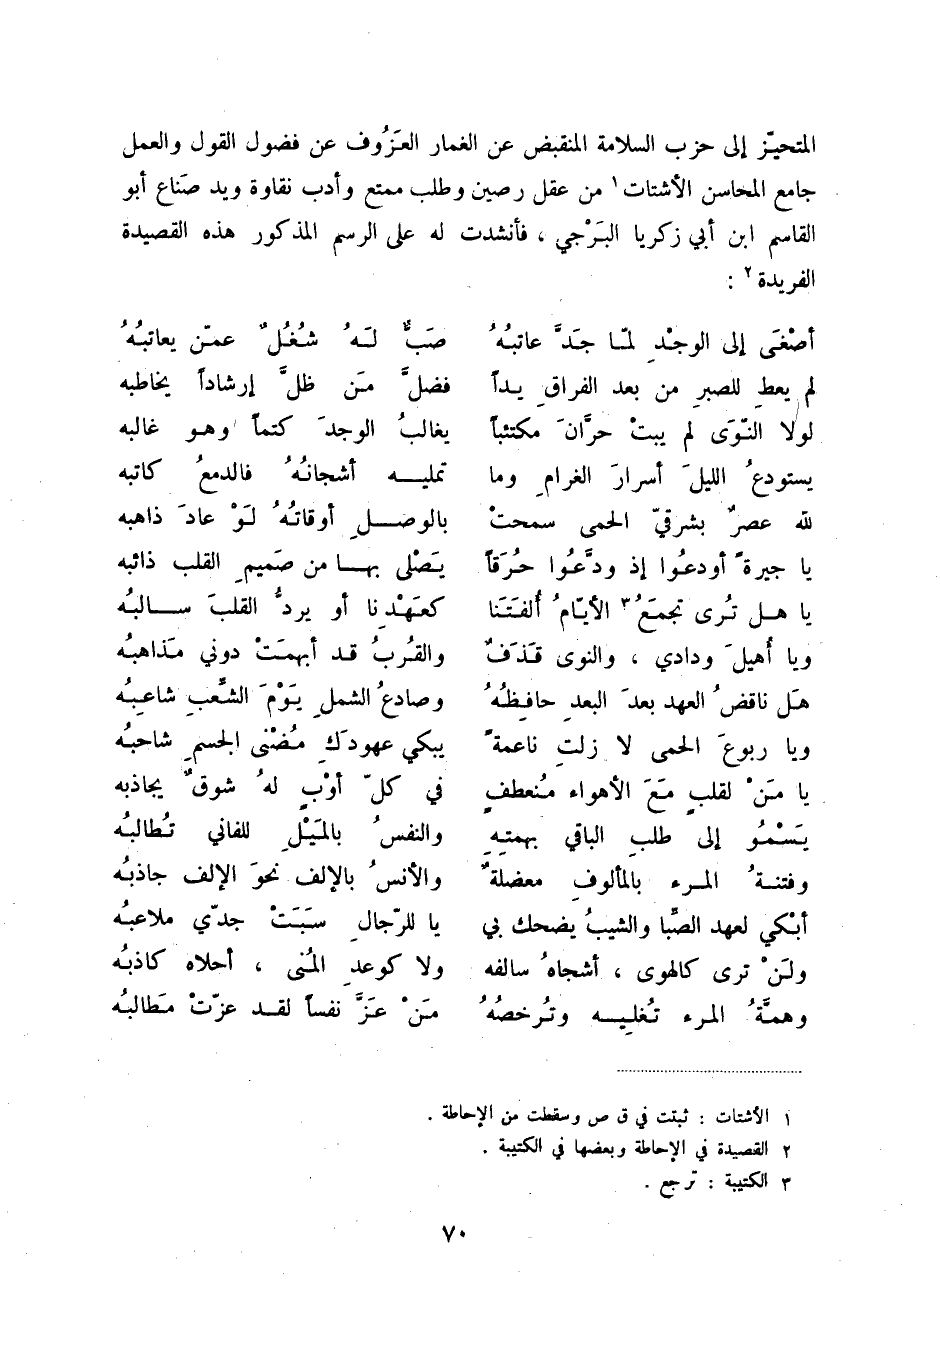 المتحيّز إلى حزب السلامة المنقبض عن الغمار العَزُوف عن فضول القول والعمل
جامع المحاسن الأشتات١ من عقل رصين وطلب ممتع وأدب نقاوة ويد صَناع أبو
القاسم ابن أبي زكريا البَرْجي ، فأنشدت له على الرسم المذكور هذه القصيدة
الفريدة٢ :
أصْغَى إلى الوجْدِ لمّا جَدَّ عاتبُهُ صَبٌّ لَهُ شُغُلٌ عمّن يعاتبُهُ
لم يعطِ للصبرِ من بعد الفراقِ يداً فضلَّ مَن ظلَّ إرشاداً يخاطبه
لولا النّوَى لم يبتْ حرَّانَ مكتئباً يغالبُ الوجدَ كتماً وهو غالبه
يستودعُ الليلَ أسرارَ الغرامِ وما تمليه أشجانُهُ فالدمعُ كاتبه
لله عصرٌ بشرقيّ الحمى سمحتْ بالوصلِ أوقاتُهُ لَوْ عادَ ذاهبه
يا جيرةً أودعُوا إذ ودَّعُوا حُرَقاً يَصْلى بها من صَميمِ القلب ذائبه
يا هل تُرى تجمَعُ٣ الأيّامُ أُلفَتَنَا كعَهْدِنا أو يردُّ القلبَ سالبُه
ويا أُهيلَ ودادي ، والنوى قَذَفٌ والقُربُ قد أبهمَتْ دوني مَذاهبُه
هَل ناقضُ العهد بعدَ البعدِ حافظُهُ وصادعُ الشملِ يَوْمَ الشَّعبِ شاعبُه
ويا ربوعَ الحمى لا زلتِ ناعمةً يبكي عهودَكِ مُضْنى الجسمِ شاحبُه
يا مَنْ لقلبٍ مَعَ الأهواء مُنعطفٍ في كلّ أوْبٍ لهُ شوقٌ يجاذبه
يَسْمُو إلى طلبِ الباقي بهمتِهِ والنفسُ بالمَيْلِ للفاني تُطالبُه
وفتنةُ المرء بالمألوفِ معضلةٌ والأنسُ بالإلف نحوَ الإلف جاذبُه
أبْكي لعهد الصِّبا والشيبُ يضحك بي يا للرّجالِ سبَبَتْ جدّي ملاعبُه
ولَنْ ترى كالهوى ، أشجاهُ سالفه ولا كوعدِ المُنى ، أحلاه كاذبُه
وهمَّةُ المرء تُغليه وتُرخصُهُ مَنْ عَزَّ نفساً لقد عزّتْ مَطالبُه
١ الأشتات : ثبتت في ق ص وسقطت من الإحاطة .
٢ القصيدة في الإحاطة وبعضها في الكتيبة .
٣ الكتيبة : ترجع .
٧٠